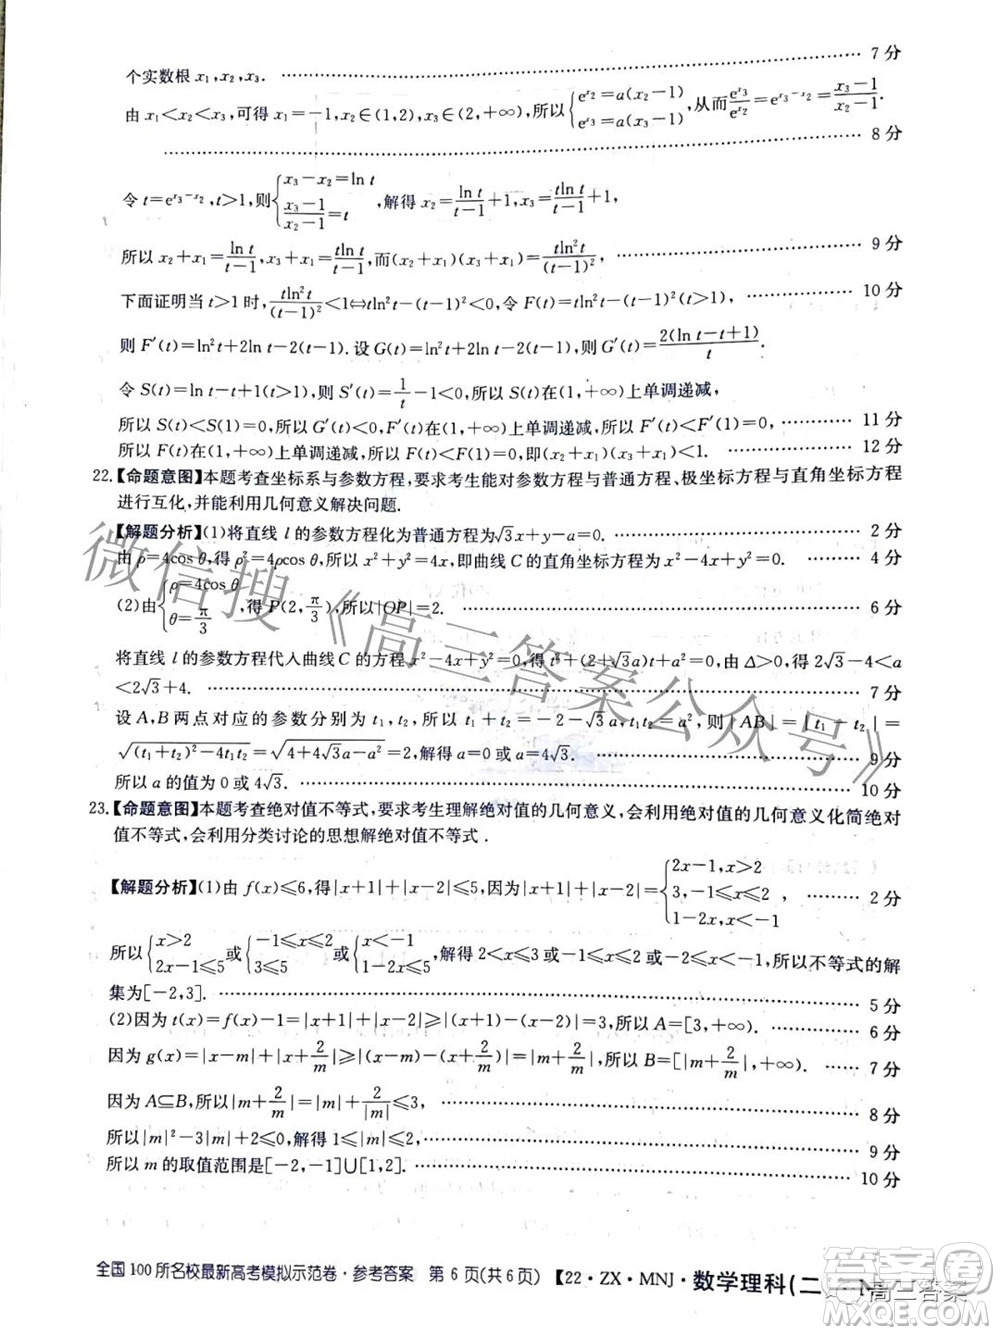 个实数根 x₁,x₂,x₃. …… 7 分
由 x₁<x₂<x₃,可得 x₁=-1,x₂∈(1,2),x₃∈(2,+∞),所以{e^{x₂}=a(x₂-1) e^{x₃}=a(x₃-1),从而e^{x₃}/e^{x₂}=e^{x₃-x₂}=(x₃-1)/(x₂-1).
…… 8 分
令 t=e^{x₃-x₂},t>1,则{x₃-x₂=ln t (x₃-1)/(x₂-1)=t,解得 x₂=ln t/(t-1)+1,x₃=tln t/(t-1)+1,
所以 x₂+x₁=ln t/(t-1),x₃+x₁=tln t/(t-1),而(x₂+x₁)(x₃+x₁)=tln²t/(t-1)², …… 9 分
下面证明当 t>1 时,tln²t/(t-1)²<1⇔tln²t-(t-1)²<0,令 F(t)=tln²t-(t-1)²(t>1), …… 10 分
则 F′(t)=ln²t+2ln t-2(t-1).设 G(t)=ln²t+2ln t-2(t-1)(t>1),所以 G′(t)=2(ln t-t+1)/t.
令 S(t)=ln t-t+1(t>1),则 S′(t)=1/t-1<0,所以 S(t)在(1,+∞)上单调递减,
所以 S(t)<S(1)=0,所以 G′(t)<0,即 F′(t)在(1,+∞)上单调递减,所以 F′(t)<F′(1)=0, …… 11 分
所以 F(t)在(1,+∞)上单调递减,所以 F(t)<F(1)=0,即(x₂+x₁)(x₃+x₁)<1. …… 12 分
22.【命题意图】本题考查坐标系与参数方程,要求考生能对参数方程与普通方程、极坐标方程与直角坐标方程
进行互化,并能利用几何意义解决问题.
【解题分析】(1)将直线 l 的参数方程化为普通方程为√3x+y-a=0. …… 2 分
由 ρ=4cos θ,得 ρ²=4ρcos θ,所以 x²+y²=4x,即曲线 C 的直角坐标方程为 x²-4x+y²=0. …… 4 分
(2)由{ρ=4cos θ θ=π/3,得 P(2,π/3),所以|OP|=2. …… 6 分
将直线 l 的参数方程代入曲线 C 的方程 x²-4x+y²=0,得 t²+(2-√3a)t+a²=0,由 Δ>0,得 2√3-4<a
<2√3+4. …… 7 分
设 A、B 两点对应的参数分别为 t₁,t₂,所以 t₁+t₂=-2-√3a,t₁t₂=a²,则|AB|=|t₁-t₂|=
√((t₁+t₂)²-4t₁t₂)=√(4+4√3a-a²)=2,解得 a=0 或 a=4√3. …… 9 分
所以 a 的值为 0 或 4√3. …… 10 分
23.【命题意图】本题考查绝对值不等式,要求考生理解绝对值的几何意义,会利用绝对值的几何意义化简绝对
值不等式,会利用分类讨论的思想解绝对值不等式.
【解题分析】(1)由 f(x)≤6,得|x+1|+|x-2|≤5,因为|x+1|+|x-2|={2x-1,x>2 3,-1≤x≤2 1-2x,x<-1, …… 2 分
所以{x>2 2x-1≤5或{-1≤x≤2 3≤5或{x<-1 1-2x≤5,解得 2<x≤3 或-1≤x≤2 或-2≤x<-1,所以不等式的解
集为[-2,3]. …… 5 分
(2)因为 t(x)=|x+1|+|x-2|≥|(x+1)-(x-2)|=3,所以 A=[3,+∞). …… 6 分
因为 g(x)=|x-m|+|x+2/m|≥|(x-m)-(x+2/m)|=|m+2/m|,所以 B=[|m+2/m|,+∞). …… 7 分
因为 A⊆B,所以|m+2/m|=|m|+2/|m|≤3, …… 8 分
所以|m|²-3|m|+2≤0,解得 1≤|m|≤2, …… 9 分
所以 m 的取值范围是[-2,-1]∪[1,2]. …… 10 分
全国 100 所名校最新高考模拟示范卷·参考答案 第 6 页(共 6 页) 【22·ZX·MNJ·数学理科(二
微信搜《高三答案公众号》
高三答案